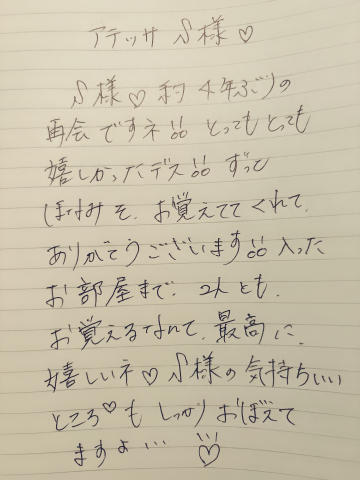 アテッサ S様♡
S様♡ 約4年ぶりの
再会ですネ!! とってもとっても
嬉しかったデス!! ずっと
ほなみを、お覚えててくれて、
ありがとうございます!! 入った
お部屋まで、2人とも、
お覚えるなんて、最高に、
嬉しいネ♡ S様の気持ちいい
ところ♡も しっかりおぼえて
ますよ… ♡